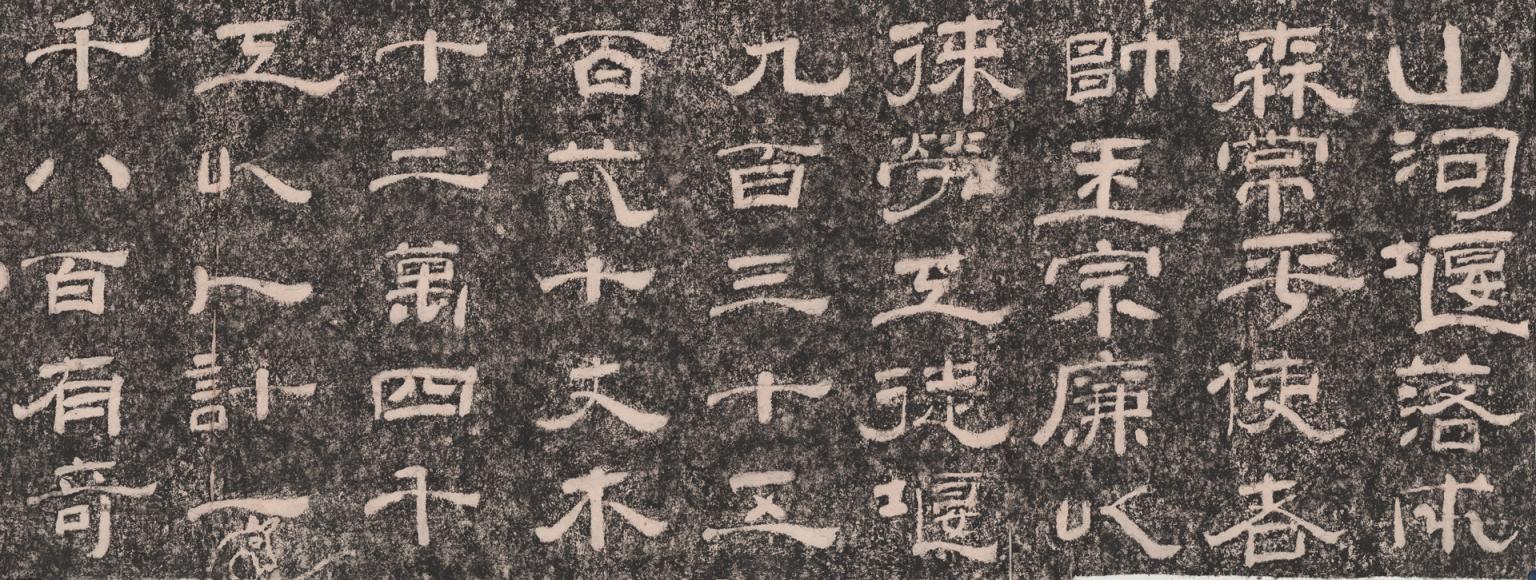 山河堰落成
森常平使者
帥王宗廉以
徠勞工徒堰
九百三十五
百六十丈木
十二萬四千
工以人計一
千八百有奇